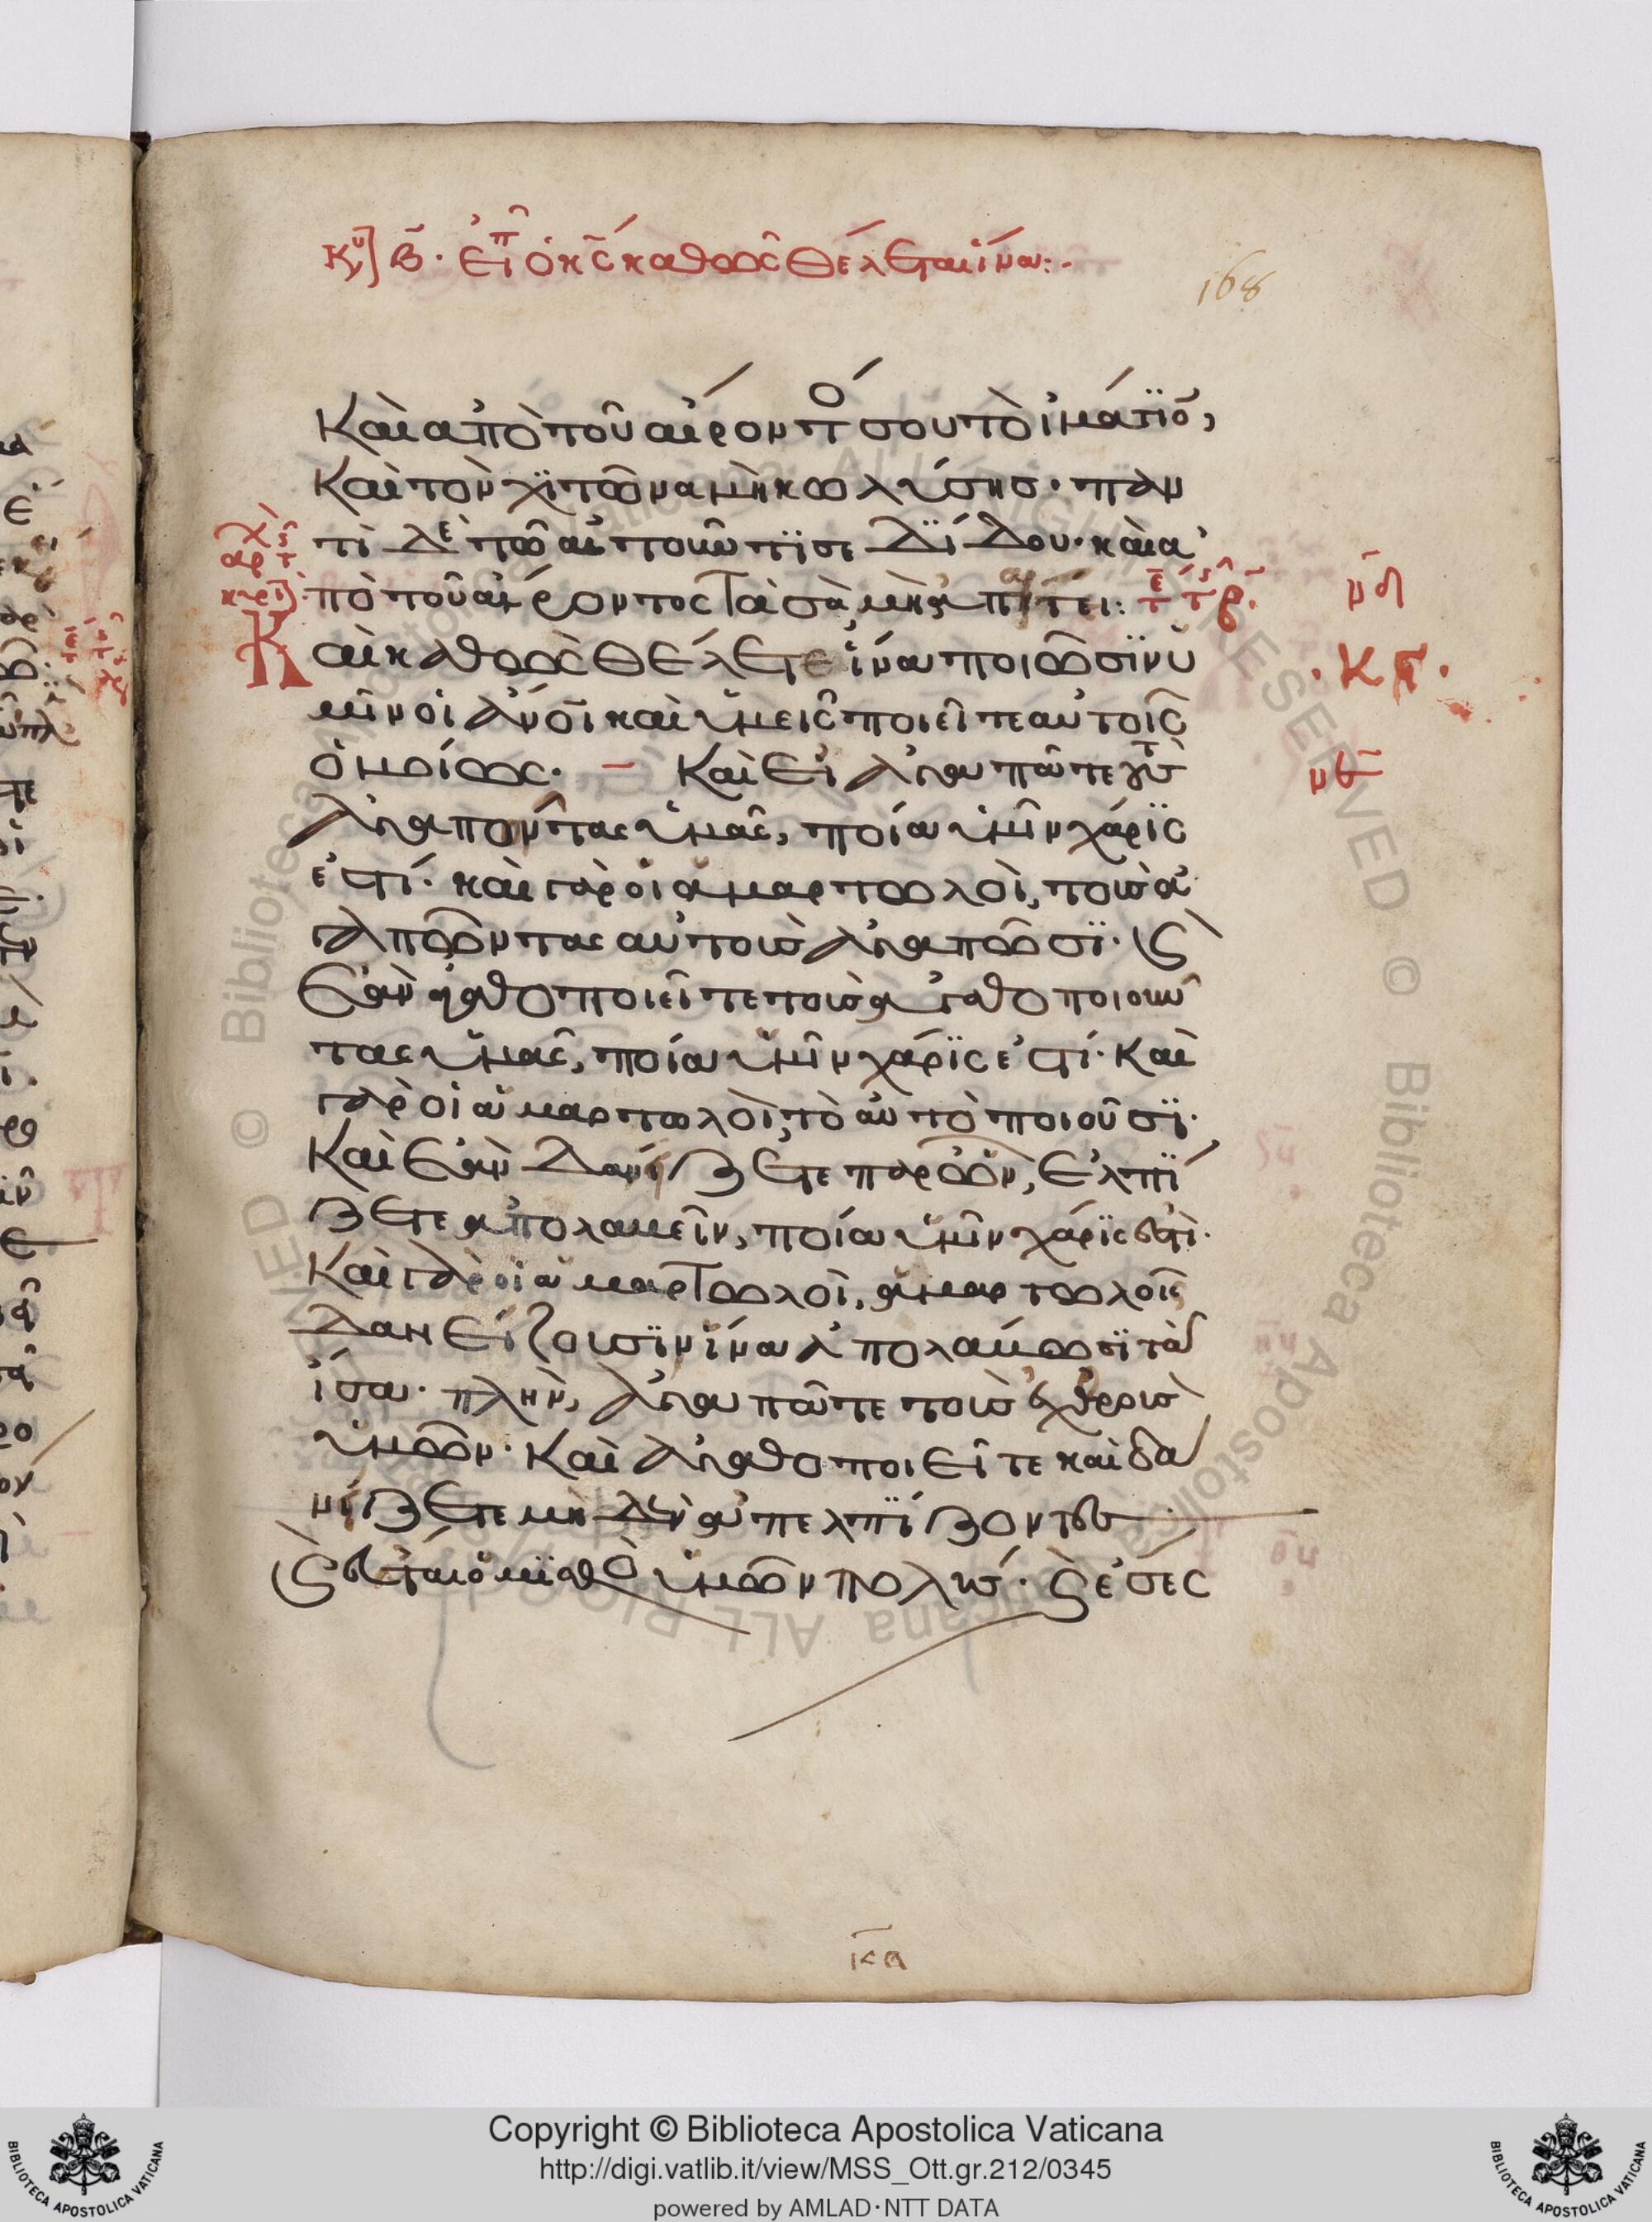 Κυ] Β̄· εἶπ ὁ κς̄ καθὼς θέλεται ἵνα:·
168
Καὶ ἀπὸ τοῦ αἴροντό σου τὸ ἱμάτιο,
καὶ τὸν χιτῶνα μὴ κωλύσης· παν
τὶ δὲ τῶ αἰτοῦντί σε δίδου· καὶ ἀ
πὸ τοῦ αἴροντος τὰ σὰ, μὴ ἀπαίτει:
Καὶ καθὼς θέλετε ἵνα ποιῶσιν ὑ
μῖν οἱ ἄνοι καὶ ὑμεῖς ποιεῖτε αὐτοῖς
ὁμοίως· Καὶ εἰ ἀγαπᾶτε τοὺς
ἀγαποῦντας ὑμᾶς, ποία ὑμῖν χάρις
ἐστί· καὶ γὰρ οἱ ἁμαρτωλοὶ, τοὺς ἀ
γαπῶντας αὐτοὺς ἀγαπῶσι· Ϛ
ἐὰν ἀγαθοποιεῖτε τοὺς ἀγαθοποιοῦν
τας ὑμᾶς, ποία ὑμῖν χάρις ἐστί· Καὶ
γὰρ οἱ ἁμαρτωλοὶ, τὸ αὐτὸ ποιοῦσι·
Καὶ ἐὰν δανίζετε παρ' ὧν, ἐλπί
ζετε ἀπολαβεῖν, ποία ὑμῖν χάρις ἐστὶ·
Καὶ γὰρ οἱ ἁμαρτωλοὶ, ἁμαρτωλοῖς
δανείζουσιν ἵνα ἀπολάβωσι τὰ
ἴσα· πλὴν, ἀγαπᾶτε τοὺς ἐχθροὺς
ὑμῶν· Καὶ ἀγαθοποιεῖτε καὶ δα
νίζετε μηδὲν ἀπελπίζοντες
Ϛ ἔσται ὁ μισθὸ ὑμῶν πολύς· Ϛ ἔσεσ
μδ
·ΚΓ·
κα
Copyright © Biblioteca Apostolica Vaticana
http://digi.vatlib.it/view/MSS_Ott.gr.212/0345
powered by AMLAD·NTT DATA
BIBLIOTECA APOSTOLICA VATICANA
BIBLIOTECA APOSTOLICA VATICANA